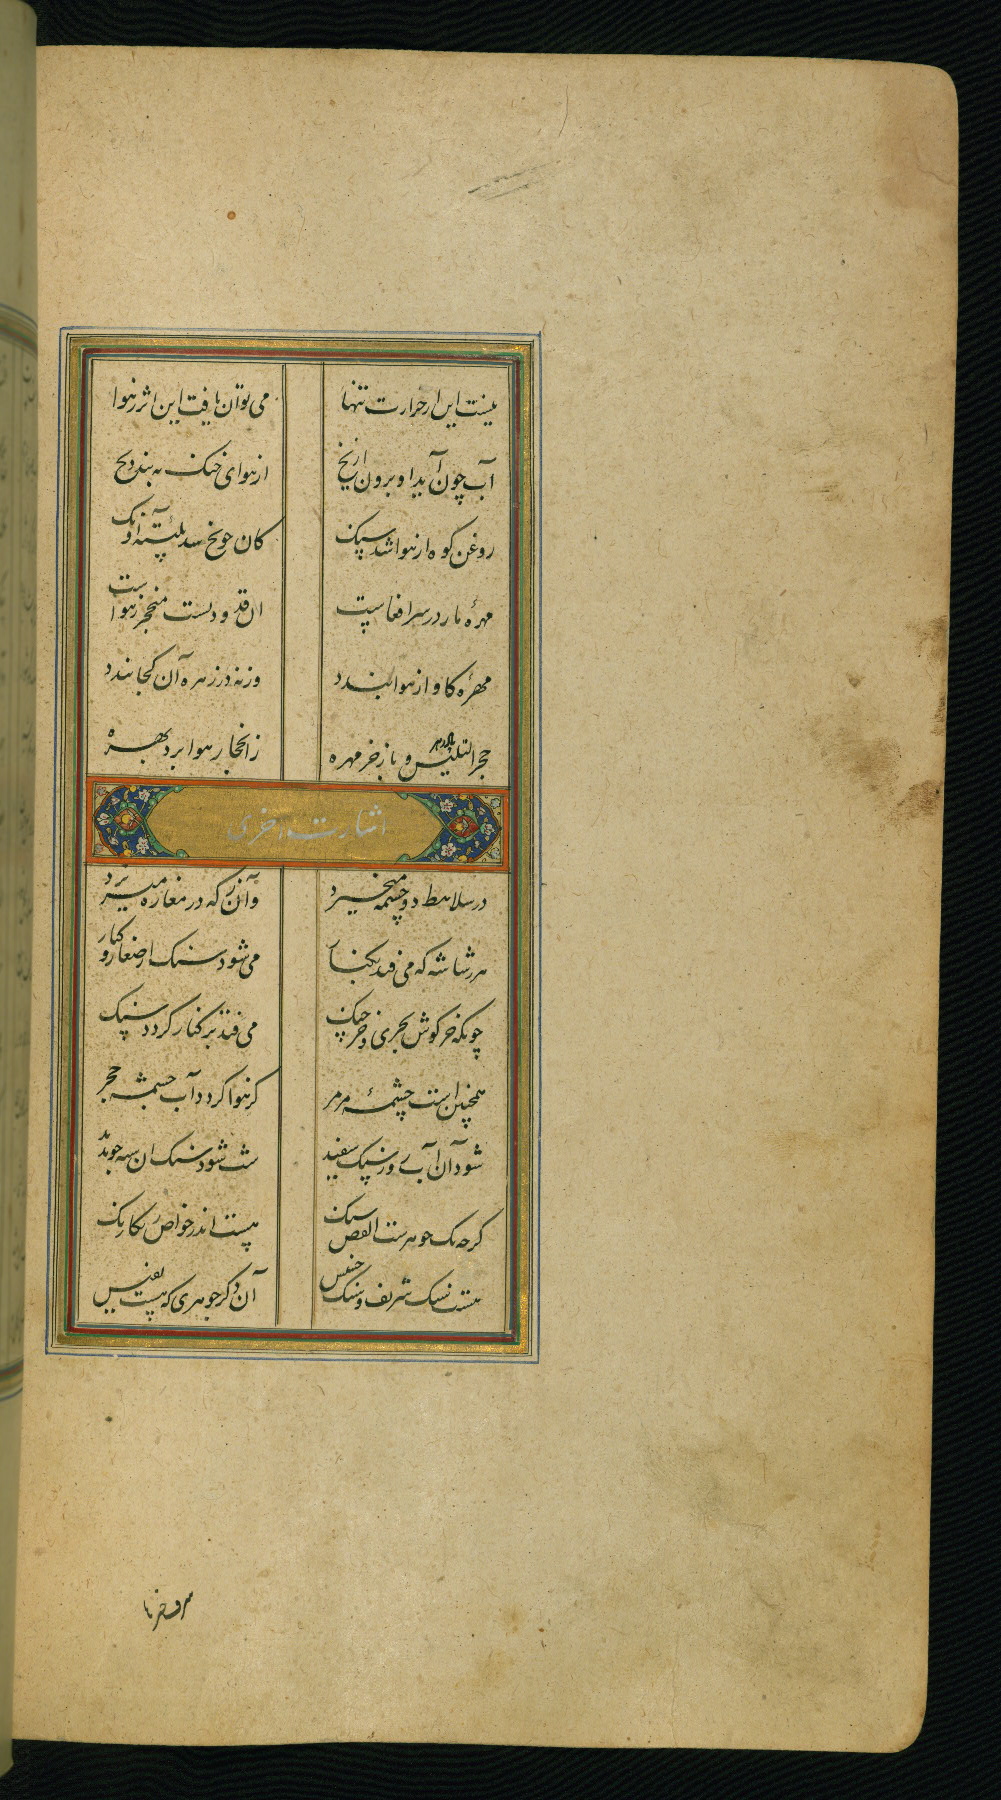 نیست این از حرارت تنها می توان یافت این اثر ز هوا
آب چون آید او برون از یخ از هوای خنک به بندد یخ
روغن کوه از هوا شد سنک کان چو یخ
مهرهٔ مار در سر افعاست منحجر ز هواست
مهرهٔ کاو از هوا بندد ورنه در زهره آن کجا بندد
حجر التیس و باز خر مهره ز انحجار هوا برد بهره
اشارت اخری
در سلامط دو چشمه میخیزد وآن که در مغاره میریزد
هر رشاشه که می فتد بکنار می شود سنک از صغار و کبار
چونکه خرکوش بحری و خرچنک می فتد بر کنار کردد سنک
همچنین است چشمهٔ مرمر کز هوا کردد آب چشمه حجر
شود آن آب روز سنک سفید شب شود سنک ان سیه جوید
کرچه یک جوهرست سنک نیست اندر خواص یکارنک
هست سنک شریف و سنک خسیس آن دکر جوهری که هست نفیس